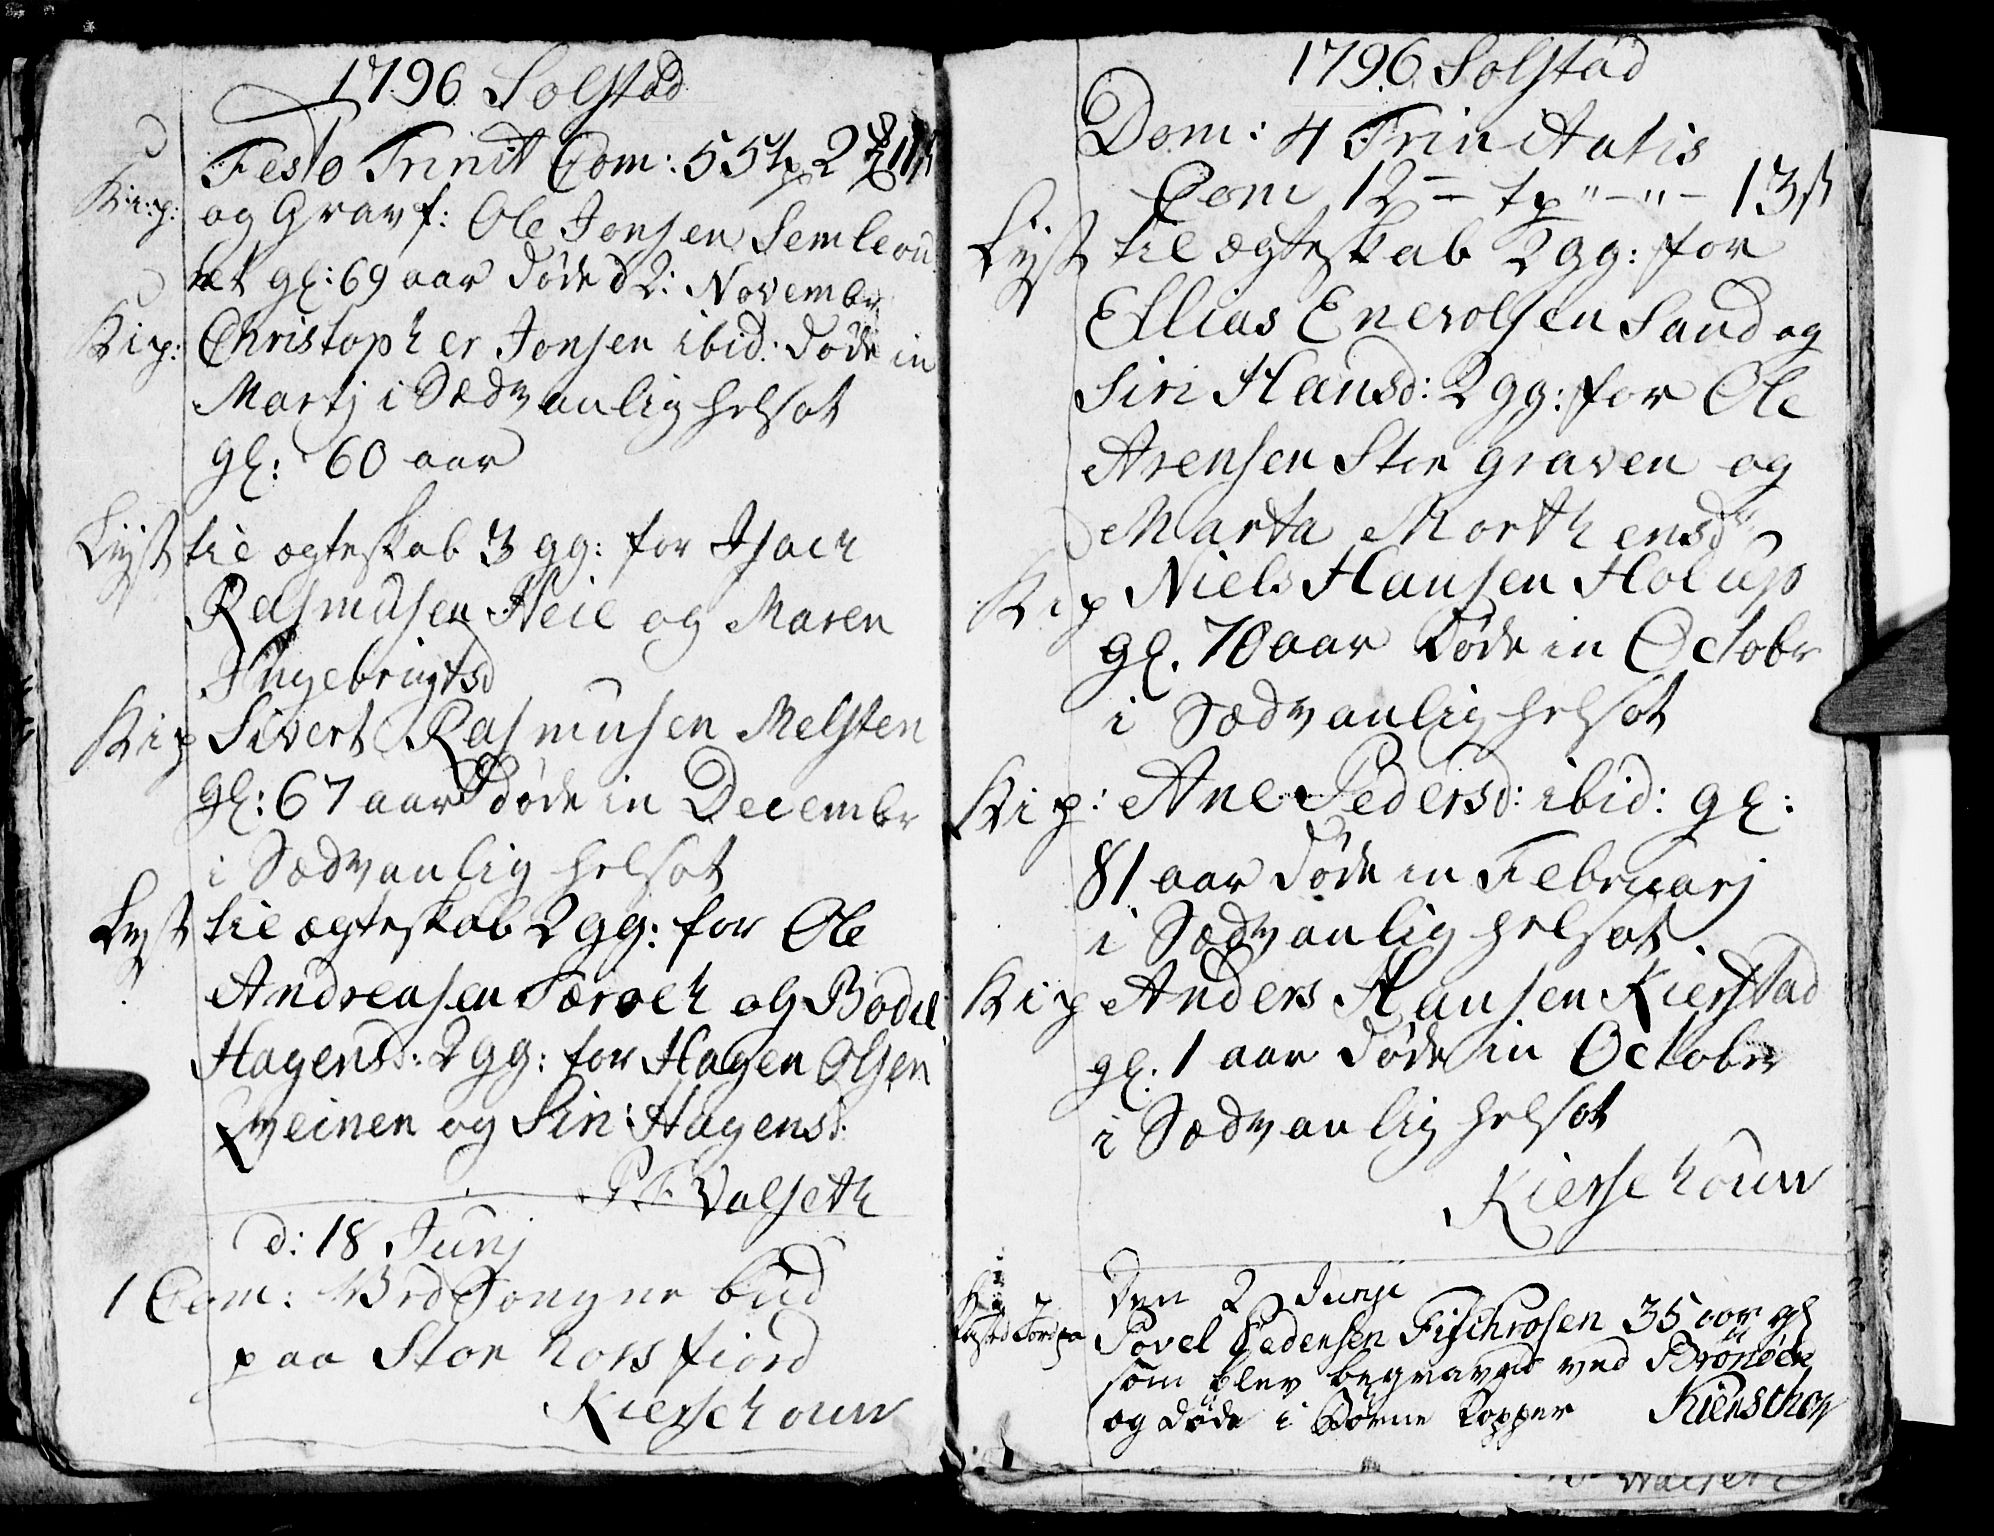 1796 Solstad
Festo Trinit Com: 55 tp 2
Ki:p: og Grav f: Ole Jonsen Semleou
et gl: 69 aar døde d 2: Novembr
Kip: Christopher Jonsen ibid: døde in
Martj i Sædvanlig helsot
gl: 60 aar
Lyst til ægteskab 3 gg: for Isach
Rasmusen Heie og Maren
Ingebrigtsd
Kip Sivert Rasmusen Melsten
gl: 67 aar døde in Decembr
i Sædvanlig helsot
Lyst til ægteskab 2 gg: for Ole
Andreasen Torvek og Bodel
Hagensd: 2 gg: for Hagen Olsen
Qveinen og Siri Hagensd:
P F Valseth
d: 18 Junj
1 Com: Ved Songne bud
paa Stor horsfiord
Kierschouw
1796 Solstad
Dom: 4 Trinitatis
Com 12 – tp "–"– 13 ß
Lyst til ægteskab 2 gg: for
Ellias Enevolsen Saud og
Siri Hansd: 2 gg: for Ole
Arensen Stengraven og
Marta Morthensd
Kip Niels Hansen Holup
gl. 70 aar døde in Octobr
i Sædvanlig helsot
Kip: Ane Pedersd: ibid: gl:
81 aar døde in Februarj
i Sædvanlig helsot
Kip Anders Hansen Kierstad
gl. 1 aar døde in Octobr
i Sædvanlig helsot
Kierschouw
Den 2 Junji
Kasted Jord paa Povel Pedersen Fischrosen 35 aar gl
som blev begravet ved Brönöen
og döde i Börne kopper Kierschow